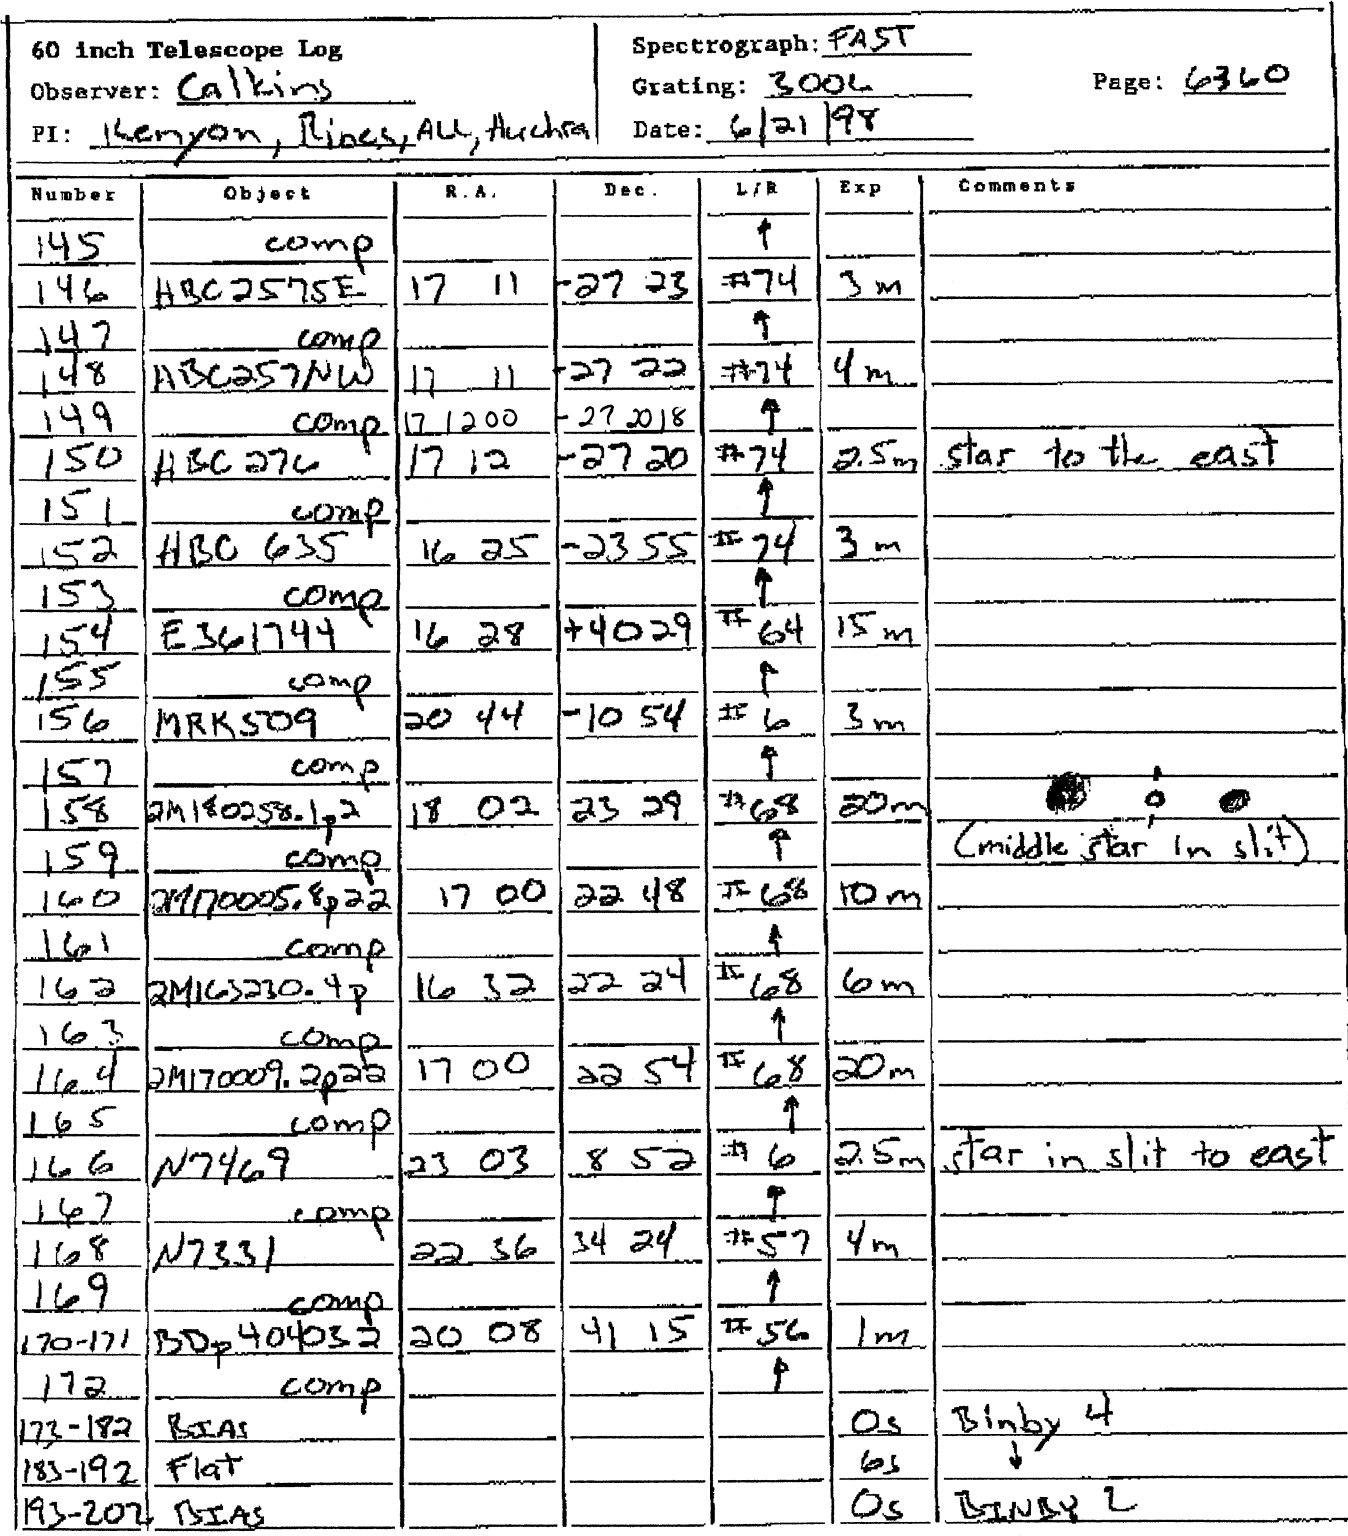 60 inch Telescope Log
Observer: Calkins
PI: Kenyon, Rines, ALL, Huchra
Spectrograph: FAST
Grating: 300L
Date: 6/21/98
Page: 6360
Number Object R.A. Dec. L/R Exp Comments
145 comp ↑
146 HBC257SE 17 11 -27 23 #74 3m
147 comp ↑
148 HBC257NW 17 11 -27 22 #74 4m
149 comp 17 12 00 -27 20 18 ↑
150 HBC 276 17 12 -27 20 #74 2.5m star to the east
151 comp ↑
152 HBC 635 16 25 -23 55 #74 3m
153 comp ↑
154 E361744 16 28 +40 29 #64 15m
155 comp ↑
156 MRK509 20 44 -10 54 #6 3m
157 comp ↑
158 2M180258.1p2 18 02 23 29 #68 20m
159 comp ↑ (middle star in slit)
160 2M170005.8p22 17 00 22 48 #68 10m
161 comp ↑
162 2M163230.4p 16 32 22 24 #68 6m
163 comp ↑
164 2M170009.2p22 17 00 22 54 #68 20m
165 comp ↑
166 N7469 23 03 8 52 #6 2.5m star in slit to east
167 comp ↑
168 N7331 22 36 34 24 #57 4m
169 comp ↑
170-171 BDp404032 20 08 41 15 #56 1m
172 comp ↑
173-182 BIAS 0s Binby 4
183-192 Flat 6s ↓
193-202 BIAS 0s BINBY 2